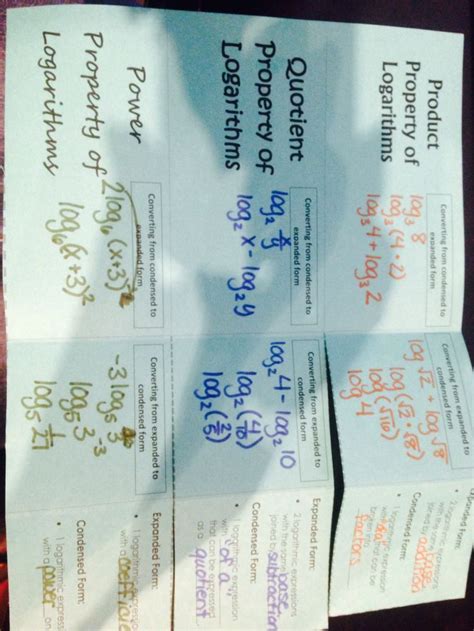 Product
Property of
Logarithms
Converting from condensed to
expanded form
log₃ 8
log₃(4·2)
log₃4 + log₃2
Converting from expanded to
condensed form
log√2 + log√8
log(√2·√8)
log(√16)
log 4
Expanded Form:
• 2 logarithmic
with the same base
joined by addition
Condensed Form:
• 1 logarithmic expression
that can be
factors
Quotient
Property of
Logarithms
Converting from condensed to
expanded form
log₂ x/y
log₂x - log₂y
Converting from expanded to
condensed form
log₂4 - log₂10
log₂(4/10)
log₂(2/5)
Expanded Form:
• 2 logarithmic expressions
with the same base
joined by subtraction
Condensed Form:
• 1 logarithmic expression
with
that can be expressed
as a quotient
Power
Property of
Logarithms
Converting from condensed to
expanded form
2log₆(x+3)
log₆(x+3)²
Converting from expanded to
condensed form
-3log₅3
log₅3⁻³
log₅ 1/27
Expanded Form:
• 1 logarithmic expression
with a coefficient
Condensed Form:
• 1 logarithmic express
with a power on